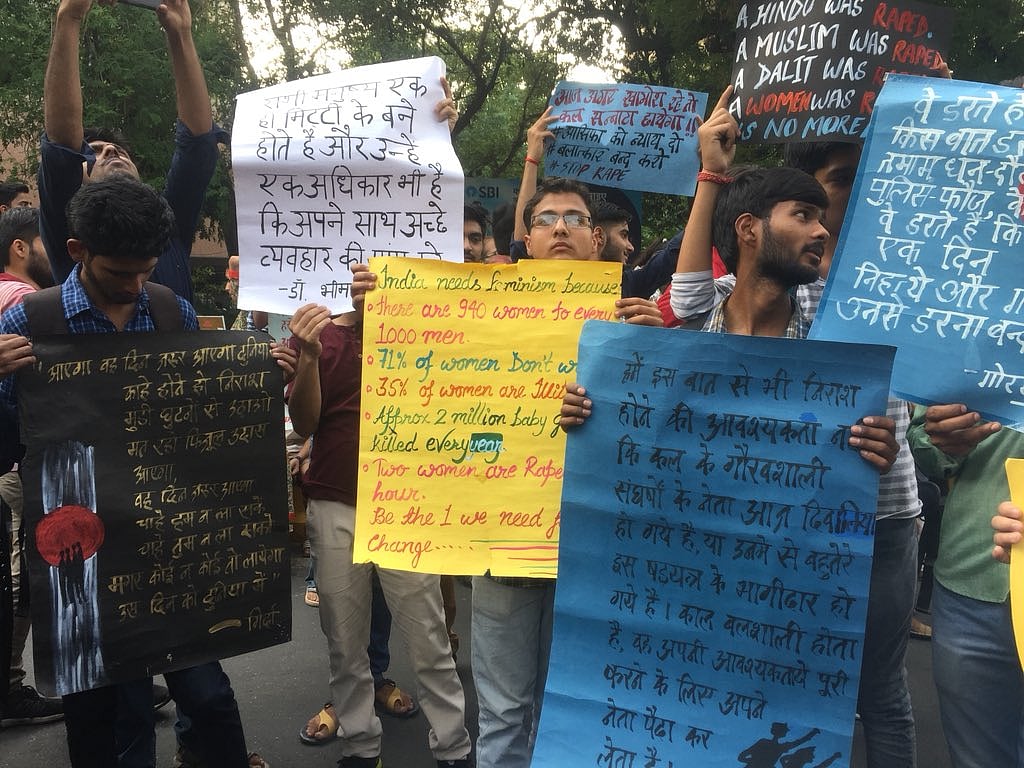 एक
मिटटी के बने
होते है और उन्हे
एक अधिकार भी है
कि अपने साथ अच्छे
व्यवहार की
- डॉ. भीम
आज अगर खामोश रहे तो
कल सन्नाटा छायेगा !!
#आसिफा को न्याय दो
#बलात्कार बन्द करो
# STOP RAPE
SBI
A HINDU WAS RAPED.
A MUSLIM WAS RAPED
A DALIT WAS
A WOMEN WAS
IS NO MORE
वे डरते
किस बात
तमाम धन-दौ
पुलिस-फौज,
वे डरते है कि
एक दिन
निहत्थे और
उनसे डरना बन्द
- गोरख
आएगा वह दिन ज़रूर आएगा दुनिया
काहे होते हो निराश
मुडी घुटनों से उठाओ
मत रहो फिजूल उदास
आएगा
वह दिन ज़रूर आएगा
चाहे हम न ला सके
चाहे तुम न ला सको
मगर कोई न कोई तो लायेगा
उस दिन को दुनिया में"
India needs feminism because
there are 940 women to every
1000 men.
71% of women Don't
35% of women are
Approx 2 million baby
killed every year
Two women are Rape
hour.
Be the 1 we need
Change.....
हमें इस बात से भी निराश
होने की आवश्यकता न
कि कल के गौरवशाली
संघर्षों के नेता आज दिवालिया
हो गये है, या उनमे से बहुतेरे
इस षडयन्त्र के भागीदार हो
गये है। काल बलशाली होता
है, वह अपनी आवश्यकतायें पूरी
करने के लिए अपने
नेता पैदा कर
लेता है।